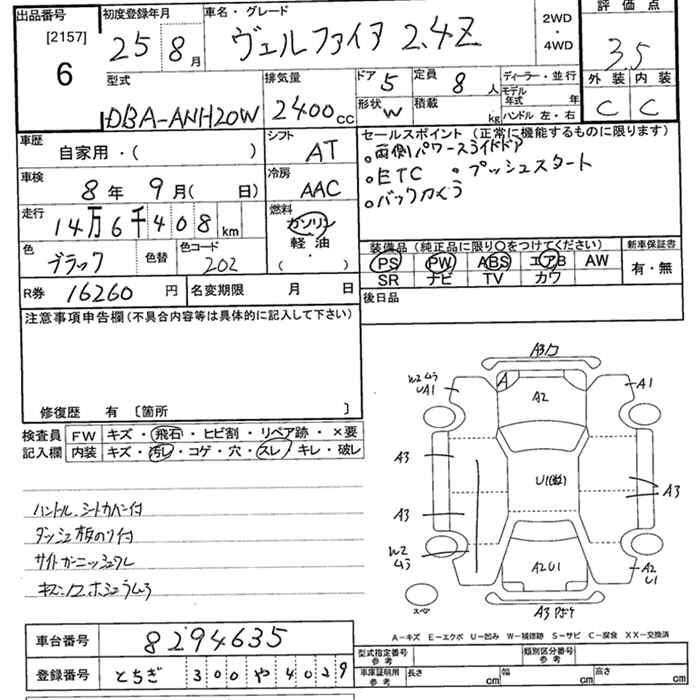 出品番号 初度登録年月 車名・グレード 2WD ・ 4WD 評価点
[2157]
6
25 8月 ヴェルファイア 2.4Z 3.5
型式 排気量 ドア 5 定員 8人 ディーラー・並行 外装 内装
DBA-ANH20W 2400cc 形状 W 積載 kg モデル年式 年 C C
ハンドル 左・右
車歴 シフト セールスポイント(正常に機能するものに限ります)
自家用・( ) AT
・両側パワースライドドア
・ETC ・プッシュスタート
・バックカメラ
車検 8年 9月( 日) 冷房 AAC
走行 14万6千408km 燃料 ガソリン 軽油 ( ・ )
色 ブラック 色替 色コード 202
装備品(純正品に限り〇をつけてください) 新車保証書
PS PW ABS エアB AW 有・無
SR ナビ TV カワ
R券 16260円 名変期限 月 日 後日品
注意事項申告欄(不具合内容等は具体的に記入して下さい)
修復歴 有 [箇所 ]
検査員 FW キズ・飛石・ヒビ割・リペア跡・×要
記入欄 内装 キズ・汚レ・コゲ・穴・スレ・キレ・破レ
ハンドル、シートカバー付
ダッシュ板のり付
サイドガーニッシュワレ
A3
W2 ムラ
UA1
A
A2
A1
A3
A3
U1
A3
W2
ムラ
A2U1
A2
U1
スペア
A3
A-キズ E-エクボ U-凹み W-補修跡 S-サビ C-腐食 XX-交換済
車台番号 8294635
登録番号 とちぎ 300 や 4029
型式指定番号 参考 類別区分番号 参考
車庫証明用 参考 長さ cm 幅 cm 高さ cm